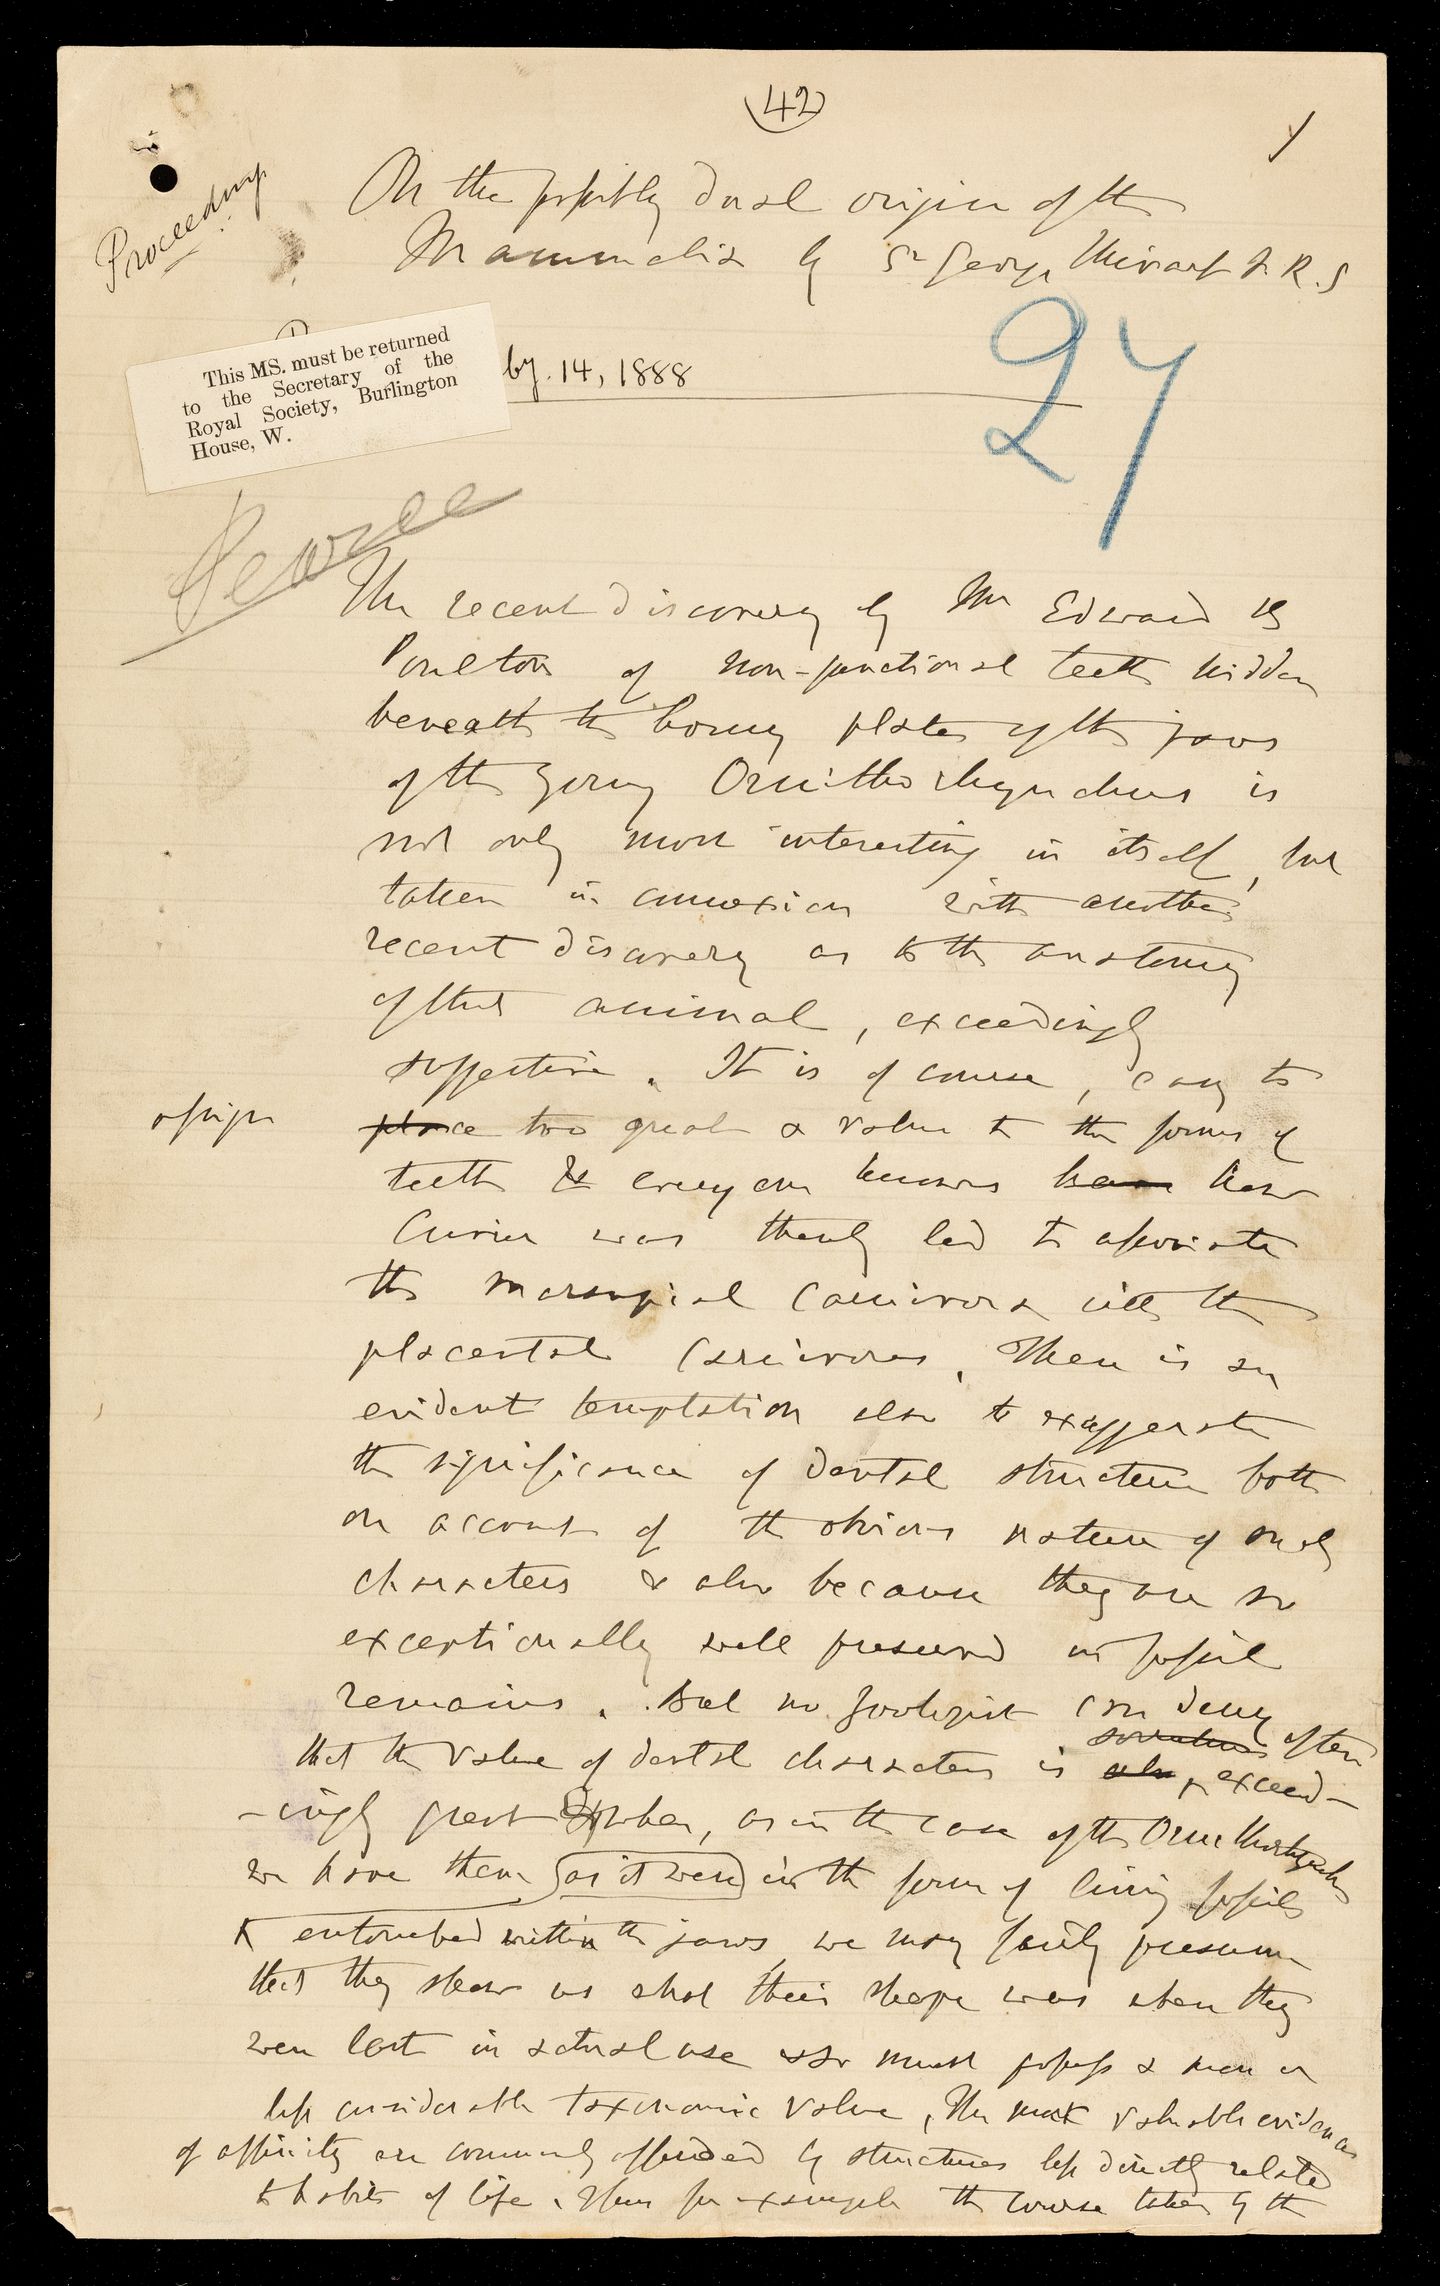 (42)
1
Proceedings
On the possibly dual origin of the
Mammalia by St George Mivart F.R.S
This MS. must be returned
to the Secretary of the
Royal Society, Burlington
House, W.
by. 14, 1888
27
The recent discovery by Mr Edward B
Poulton of non-functional teeth hidden
beneath the horny plates of the jaws
of the young Ornithorhynchus is
not only most interesting in itself, but
taken in connexion with another
recent discovery as to the anatomy
of that animal, exceedingly
suggestive. It is of course, easy to
assign
place too great a value to the forms of
teeth & everyone knows have how
Cuvier was thereby led to associate
the marsupial Carnivora with the
placental Carnivores. There is an
evident temptation also to exaggerate
the significance of dental structure both
on account of the obvious nature of such
characters & also because they are so
exceptionally well preserved in fossil
remains. But no zoologist can deny
sometimes often
that the value of dental characters is also exceed-
-ingly great when, as in the case of the Ornithorhynchus
we have them (as it were) in the form of living fossils
& entombed within the jaws, we may fairly presume
that they show us what their shape was when they
were last in actual use & so must possess a more or
less considerable taxonomic value. The most valuable evidences
of affinity are commonly afforded by structures less directly related
to habits of life. Thus for example the course taken by the